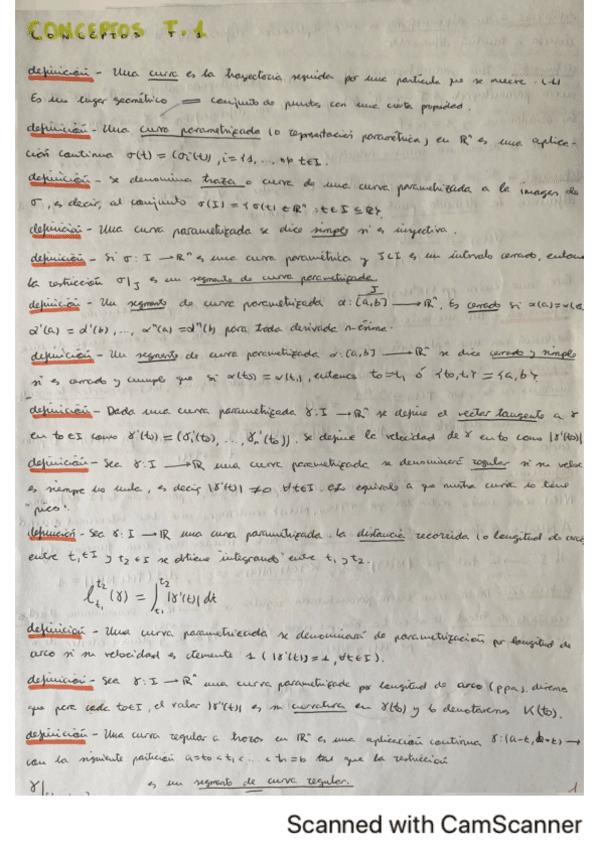 CONCEPTOS T.1
definición - Una curva es la trayectoria seguida por una partícula que se mueve.
Es un lugar geométrico = conjunto de puntos con una cierta propiedad.
definición - Una curva parametrizada (o representación paramétrica) en ℝⁿ es una aplica-
ción continua σ(t) = (σi(t)), i = 1, ..., n, t∈I.
definición - Se denomina traza o curva de una curva parametrizada a la imagen de
σ, es decir, al conjunto σ(I) = {σ(t) ∈ ℝⁿ, t∈I ⊆ ℝ}.
definición - Una curva parametrizada se dice simple si es inyectiva.
definición - Si σ: I → ℝⁿ es una curva paramétrica y J⊂I es un intervalo cerrado, entonces
la restricción σ|J es un segmento de curva parametrizada.
definición - Un segmento de curva parametrizada α: [a,b] → ℝⁿ. Es cerrado si α(a)=α(b),
α'(a) = α'(b), ..., αⁿ(a) = αⁿ(b) para toda derivada n-ésima.
definición - Un segmento de curva parametrizada α: [a,b] → ℝⁿ se dice cerrado y simple
si es cerrado y cumple que si α(t0) = α(t1), entonces t0 = t1 ó {t0,t1} = {a,b}.
definición - Dada una curva parametrizada γ: I → ℝⁿ se define el vector tangente a γ
en t0∈I como γ'(t0) = (γ1'(t0), ..., γn'(t0)). Se define la velocidad de γ en t0 como |γ'(t0)|
definición - Sea γ: I → ℝ una curva parametrizada se denominará regular si su veloc
es siempre no nula, es decir |γ'(t)| ≠ 0 ∀t∈I. equivale a que nuestra curva no tiene
"picos".
definición - Sea γ: I → ℝ una curva parametrizada. la distancia recorrida (o longitud de arco)
entre t1∈I y t2∈I se obtiene "integrando" entre t1 y t2.
ℓ_{t1}^{t2}(γ) = ∫_{t1}^{t2} |γ'(t)| dt
definición - Una curva parametrizada se denominará de parametrización por longitud de
arco si su velocidad es ctemente 1 (|γ'(t)| = 1, ∀t∈I).
definición - Sea γ: I → ℝⁿ una curva parametrizada por longitud de arco (ppa). diremos
que para cada t0∈I, el valor |γ''(t)| es su curvatura en γ(t0) y lo denotaremos K(t0).
definición - Una curva regular a trozos en ℝⁿ es una aplicación continua γ: →
con la siguiente partición a = t0 < t1 < ... < tn = b tal que la restricción
γ| es un segmento de curva regular.
1
Scanned with CamScanner